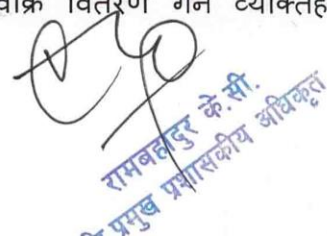 वितरण गर्ने
रामबहादुर के.सी.
प्रमुख प्रशासकीय अधिकृत